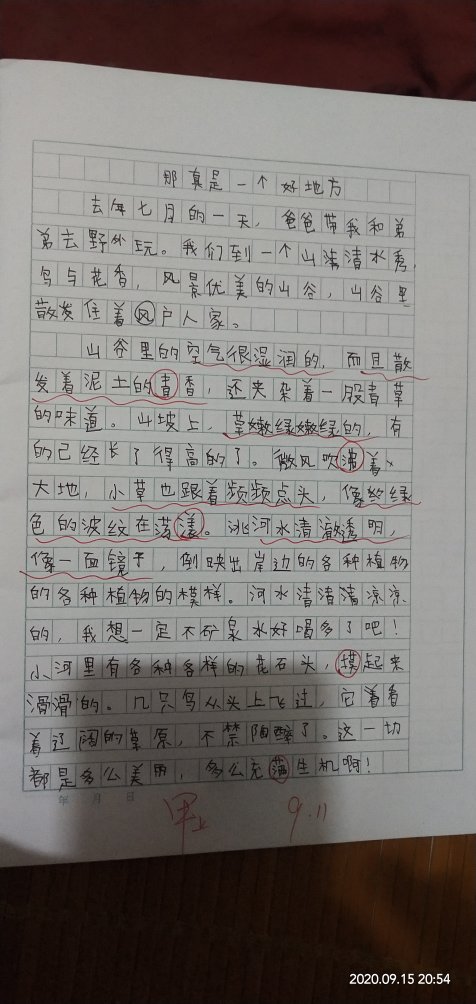 那真是一个好地方
去年七月的一天，爸爸带我和弟
弟去野外玩。我们到一个山清水秀，
鸟与花香，风景优美的山谷，山谷里
散发住着风户人家。
山谷里的空气很湿润的，而且散
发着泥土的青香，还夹杂着一股青草
的味道。山坡上，草嫩绿嫩绿的，有
的已经长了得高的了。微风吹满着
大地，小草也跟着频频点头，像丝绿
色的波纹在荡漾。洮河水清澈透明，
像一面镜子，倒映出岸边的各种植物
的各种植物的模样。河水清清清凉凉
的，我想一定不矿泉水好喝多了吧！
小河里有各种各样的花石头，摸起来
滑滑的。几只鸟从头上飞过，它看看
着辽阔的草原，不禁陶醉了。这一切
都是多么美丽，多么充满生机啊！
年 月 日
9.11
2020.09.15 20:54